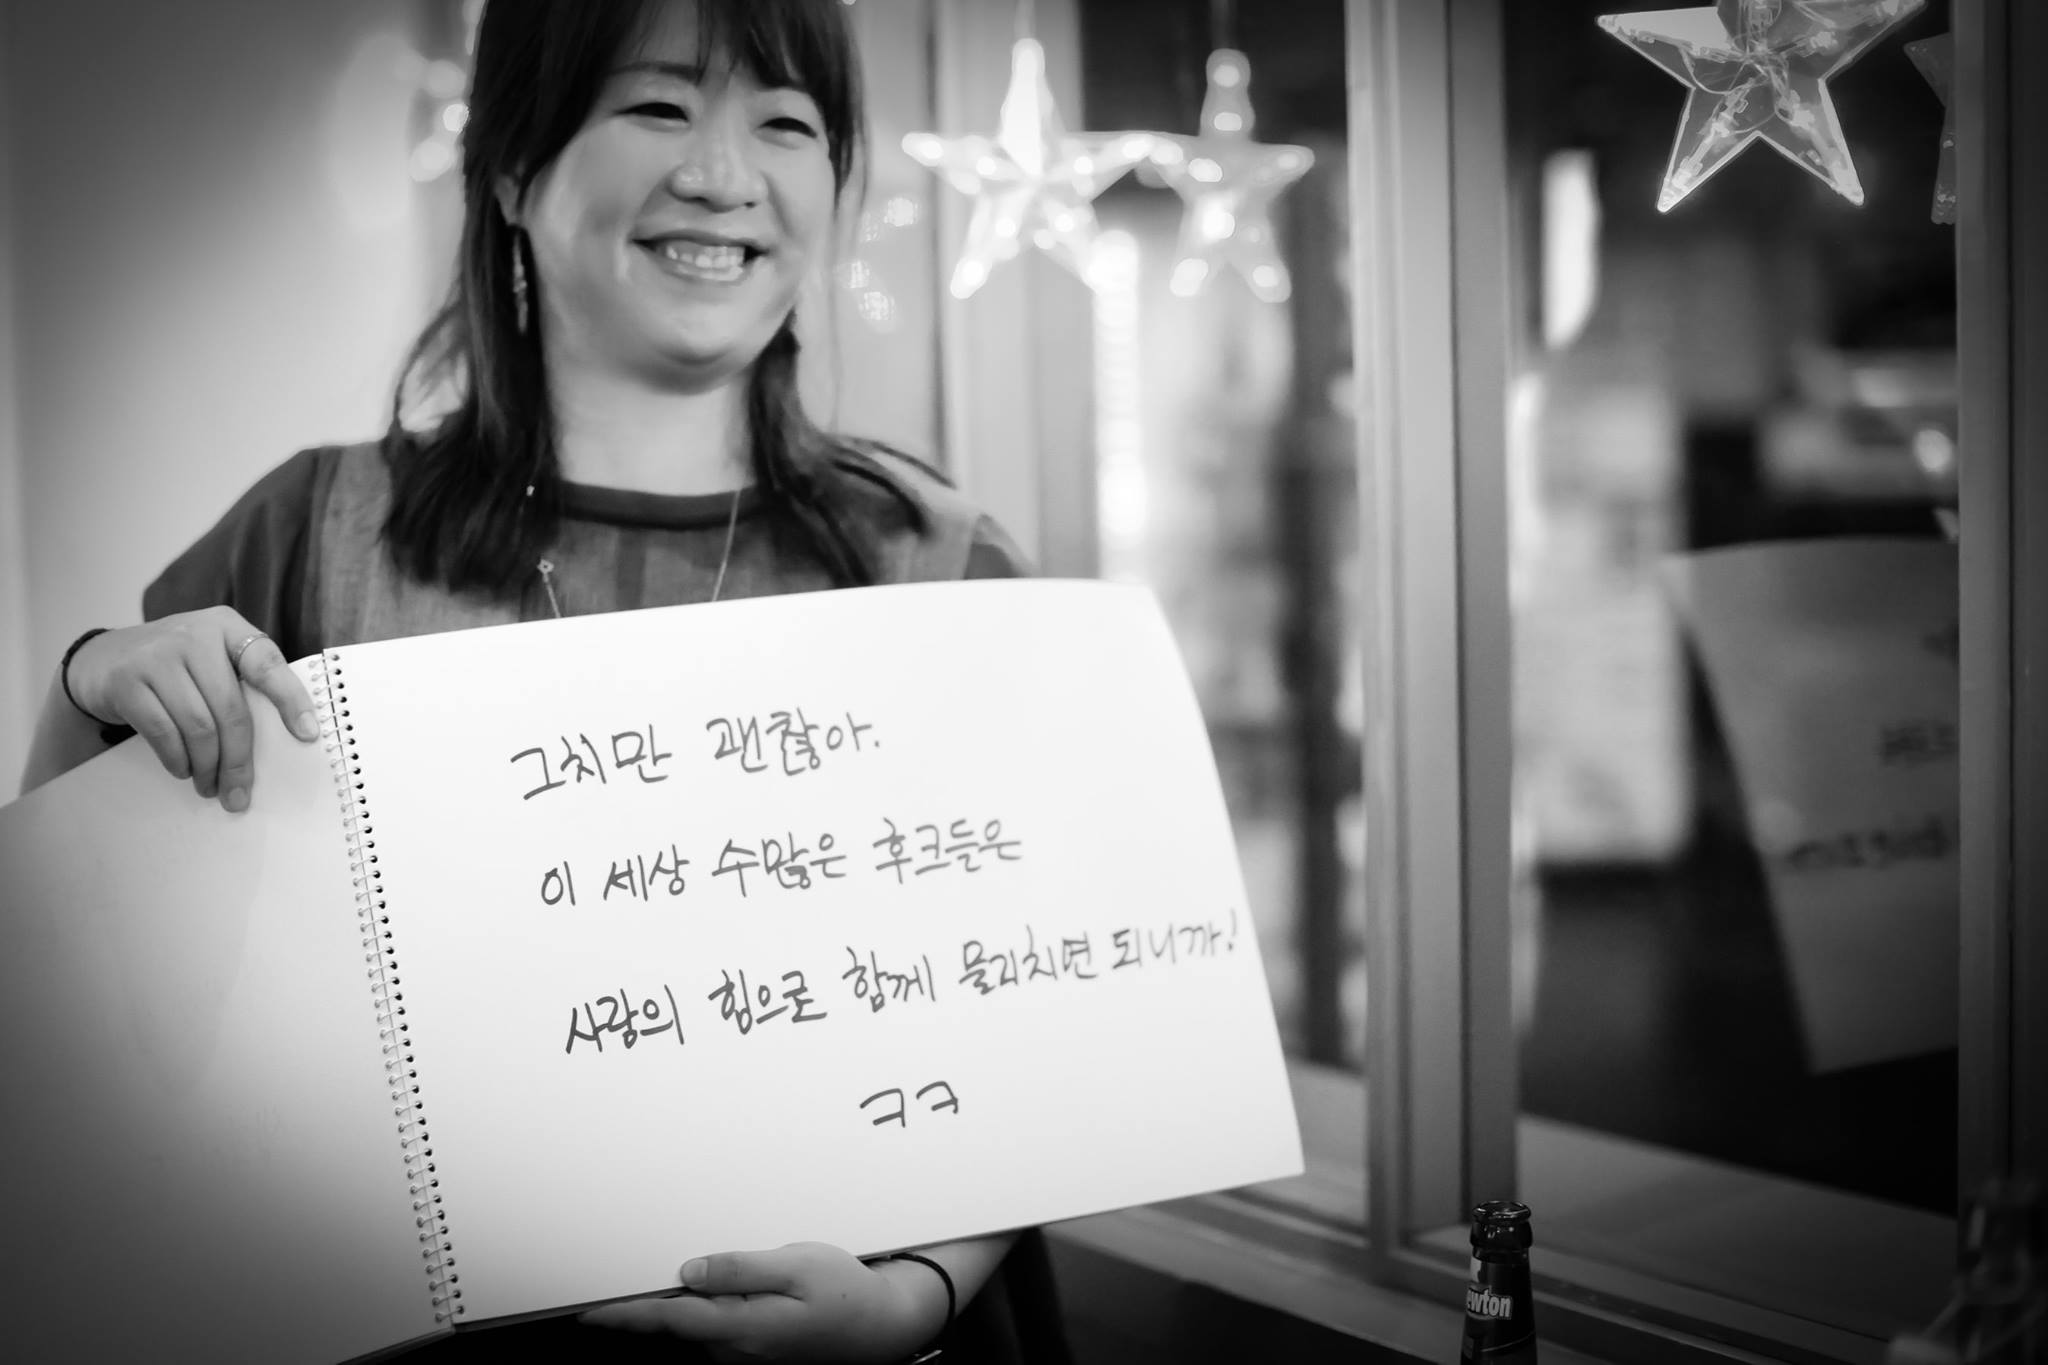 그치만 괜찮아.
이 세상 수많은 후크들은
사랑의 힘으로 함께 물리치면 되니까!
ㅋㅋ
ewton